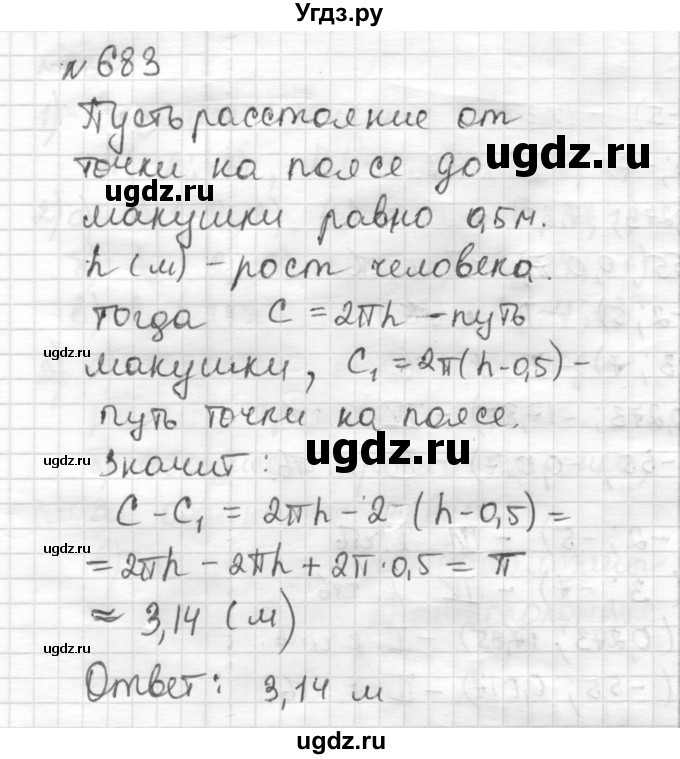 Угдз.ру
№ 683
Пусть расстояние от
точки на поясе до
ugdz.ru
ugdz.ru
макушки равно 0,5м.
h (м) - рост человека.
тогда C = 2πh - путь
ugdz.ru
макушки, C₁ = 2π(h-0,5) -
путь точки на поясе.
ugdz.ru
ugdz.ru
Значит:
C - C₁ = 2πh - 2 (h-0,5) =
ugdz.ru
= 2πh - 2πh + 2π·0,5 = π
≈ 3,14 (м)
ugdz.ru
Ответ: 3,14 м
ugdz.ru